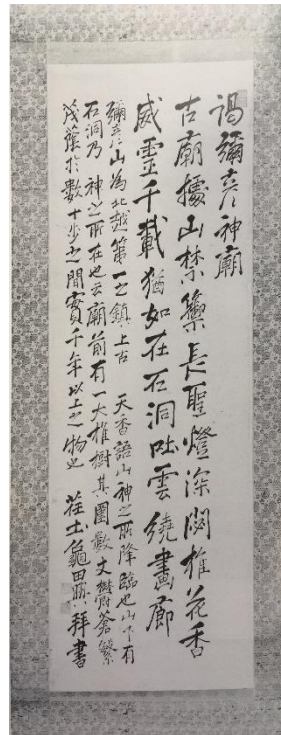 謁彌彦神廟
古廟據山禁籞長聖燈深閟椎花香
威霊千載猶如在石洞吐雲繞畫廊
彌彦山為北越第一之鎮上古天香語山神之所降臨也山下有
石洞乃神之所在也云廟前有一大椎樹其圍數丈欝蒼繁
茂蔭於數十步之間實千年以上之物也 荘士龜田興拜書